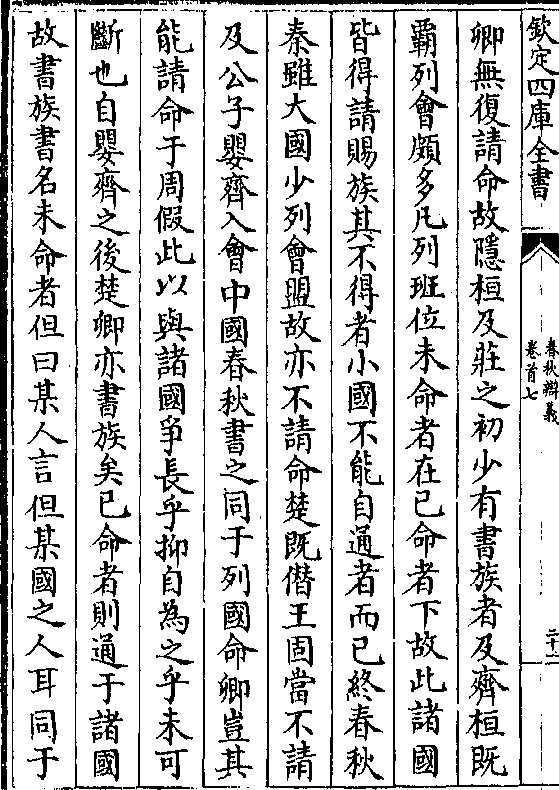 欽定四庫全書
春秋辯義
卷首七
二十二
卿無復請命故隱桓及莊之初少有書族者及齊桓既
霸列會頗多凡列班位未命者在已命者下故此諸國
皆得請賜族其不得者小國不能自通者而已終春秋
秦雖大國少列會盟故亦不請命楚既僭王固當不請
及公子嬰齊入會中國春秋書之同于列國命卿豈其
能請命于周假此以與諸國爭長乎抑自為之乎未可
斷也自嬰齊之後楚卿亦書族矣已命者則通于諸國
故書族書名未命者但曰某人言但某國之人耳同于